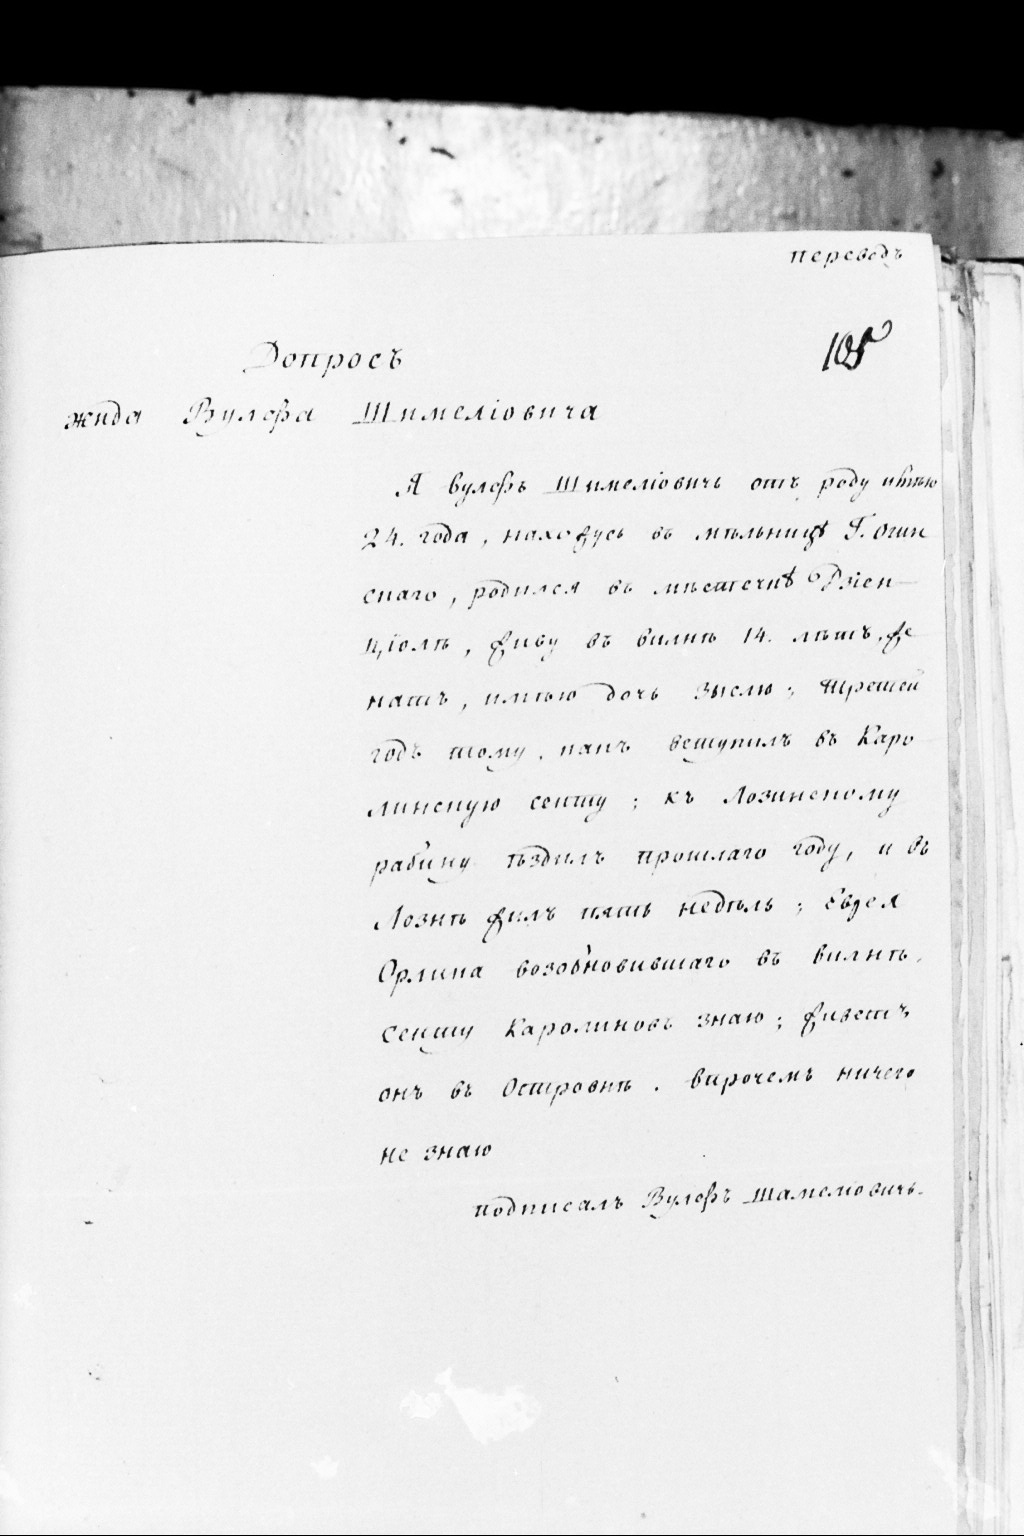 переводъ
105
Допросъ
жида Вулфа Шимеліовича
Я Вулфъ Шимеліовичь отъ роду имѣю
24. года, нахожусь въ мѣльницѣ Г. Огин
скаго, родился въ мѣстечкѣ Дзіен
ціолѣ, живу въ вилнѣ 14. лѣтъ, же
натъ, имѣю дочь Зыслю; третей
годъ тому, какъ вступилъ въ Каро
линскую секту; къ Лозинскому
рабину ѣздилъ прошлаго году, и въ
Лознѣ жилъ пять недѣль; Еврея
Орлика возобновившаго въ вилнѣ
секту Каролиновъ знаю; живетъ
онъ въ Островнѣ. впрочемъ ничего
не знаю
подписалъ Вулфъ Шамеліовичь.